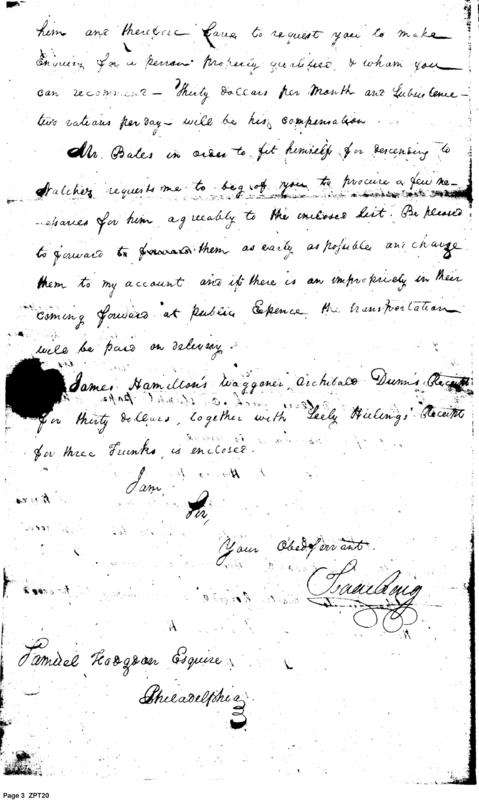 him and therefore have to request you to make
enquiry for a person properly qualified & whom you
can recommend – Thirty dollars per Month and Subsistence –
two rations per day – will be his compensation.
Mr. Bates in order to fit himself for descending to
Natchez requests me to beg of you to procure a few ne-
-cessaries for him agreeably to the inclosed list. Be pleased
to forward to forward them as early as possible and charge
them to my account and if there is an impropriety in their
coming forward at public Expence the transportation
will be paid on delivery.
James Hamilton's Waggoner, Archibald Dunns Receipt
for thirty dollars, together with Seely Huling's Receipt
for three Trunks, is enclosed.
I am,
Sir,
Your Obed Servant.
Isaac Craig
Samuel Hodgdon Esquire
Philadelphia
Page 3 ZPT20